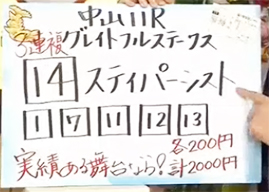 中山11R
3連複
グレイトフルステークス
14 スティパーシスト
1 7 11 12 13
各200円
実績ある舞台なら? 計2000円